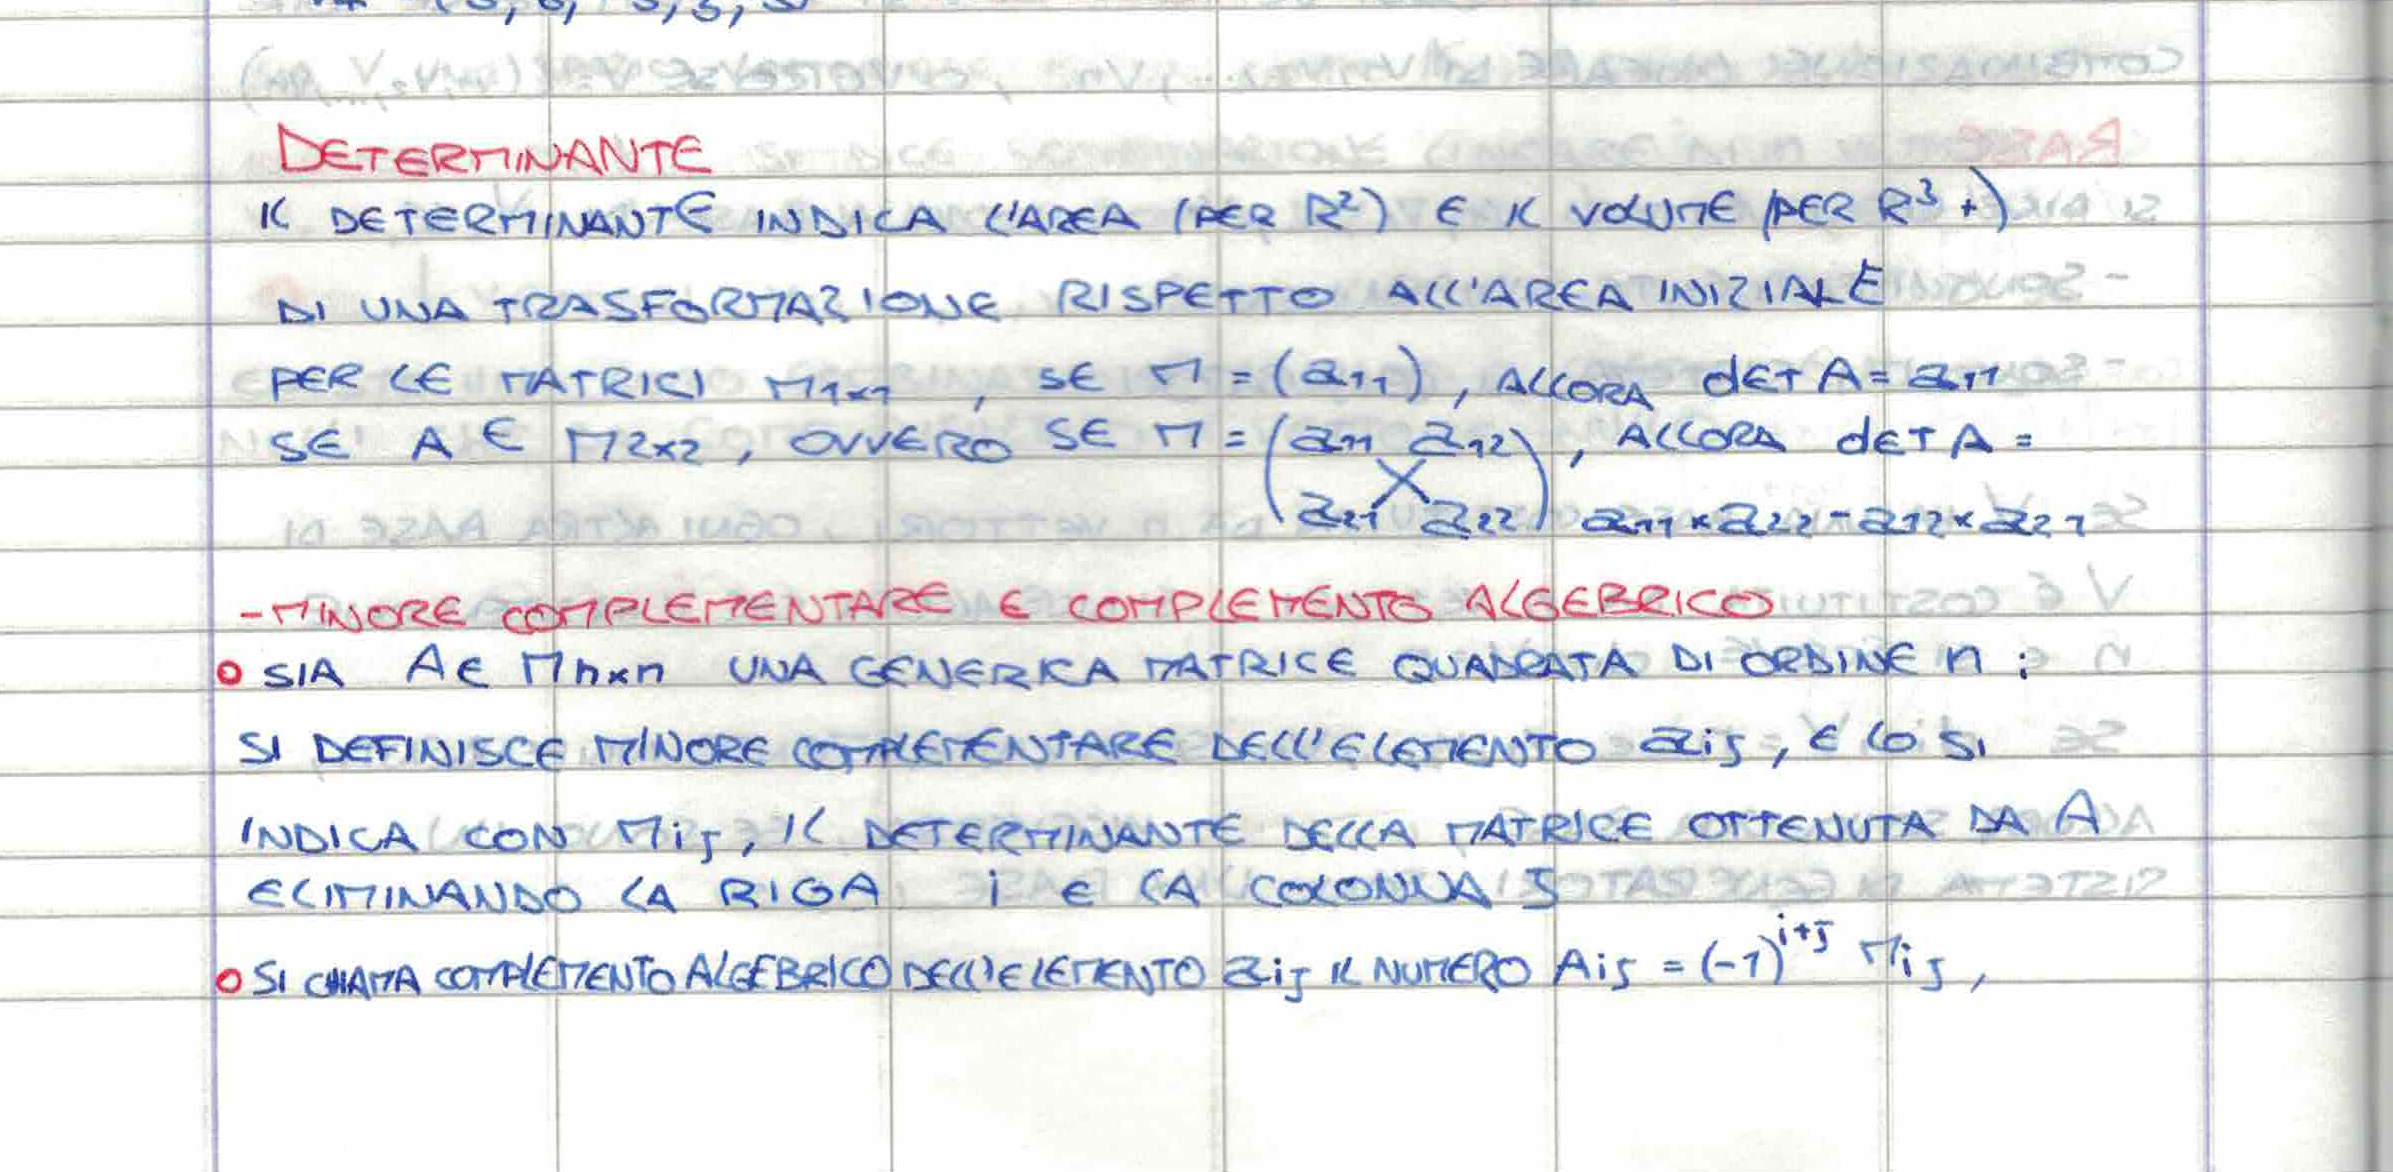 DETERMINANTE
IL DETERMINANTE INDICA L'AREA (PER R²) E IL VOLUME (PER R³ +)
DI UNA TRASFORMAZIONE RISPETTO ALL'AREA INIZIALE
PER LE MATRICI M1x1, SE M = (a11), ALLORA det A = a11
SE A ∈ M2x2, OVVERO SE M = (a11 a12), ALLORA det A =
a21 a22 a11 x a22 - a12 x a21
- MINORE COMPLEMENTARE E COMPLEMENTO ALGEBRICO
o SIA A ∈ Mnxn UNA GENERICA MATRICE QUADRATA DI ORDINE n :
SI DEFINISCE MINORE COMPLEMENTARE DELL'ELEMENTO aij, E LO SI
INDICA CON Mij, IL DETERMINANTE DELLA MATRICE OTTENUTA DA A
ELIMINANDO LA RIGA i E LA COLONNA J
o SI CHIAMA COMPLEMENTO ALGEBRICO DELL'ELEMENTO aij IL NUMERO Aij = (-1)^i+j Mij,